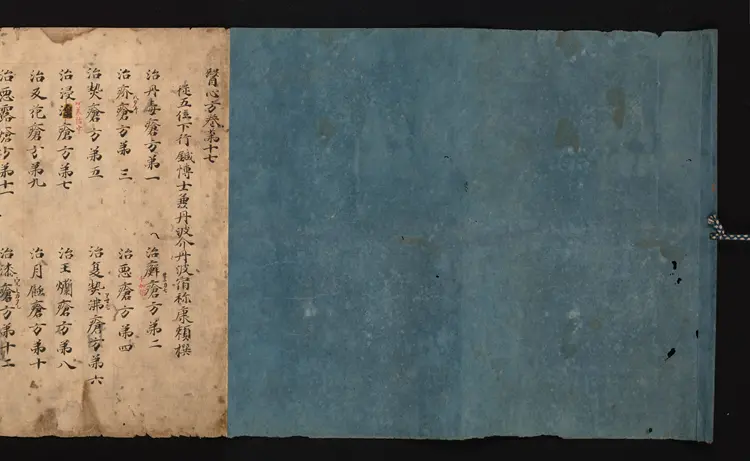 醫心方卷第十七
從五位下行鍼博士兼丹波介丹波宿祢康頼撰
治丹毒瘡方第一
治癬瘡方第二
治疥瘡方第三
治惡瘡方第四
治熱瘡方第五
治夏熱沸瘡方第六
治浸瘡方第七
治王爛瘡方第八
治反花瘡方第九
治月蝕瘡方第十
治惡露瘡方第十一
治漆瘡方第十二